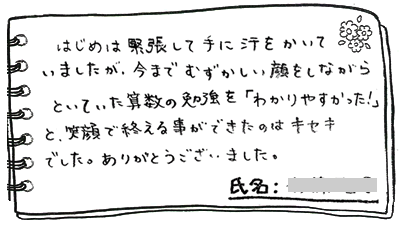 はじめは緊張して手に汗をかいて
いましたが、今までむずかしい顔をしながら
といていた算数の勉強を「わかりやすかった!」
と、笑顔で終える事ができたのはキセキ
でした。ありがとうございました。
氏名: